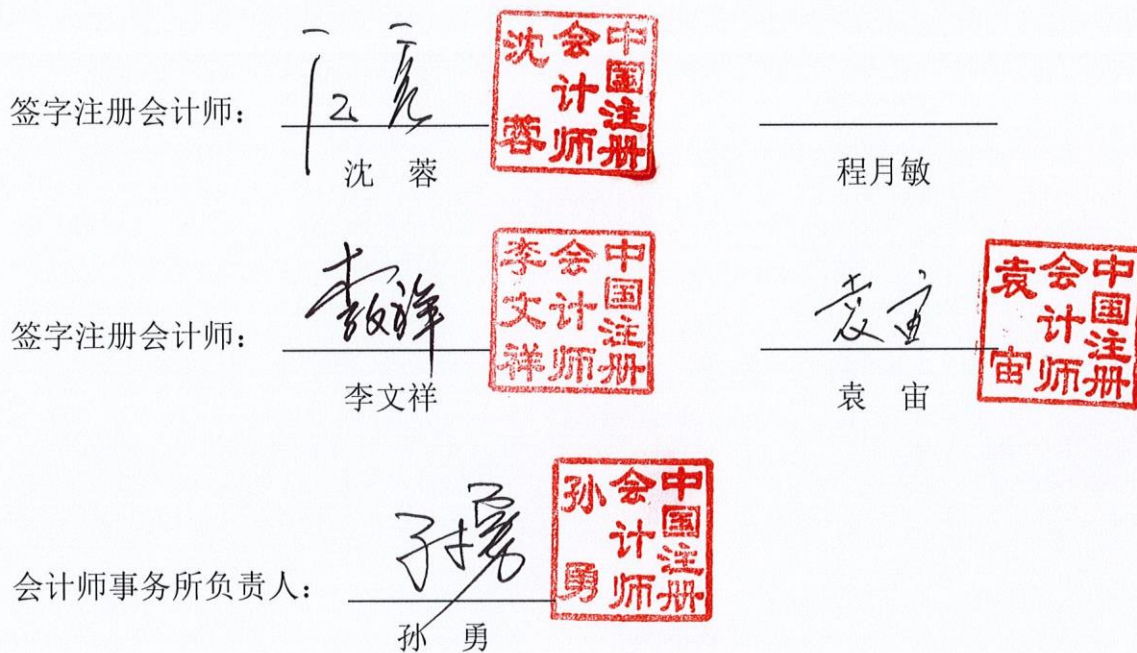 签字注册会计师：
中国注册会计师 沈蓉
沈 蓉
程月敏
签字注册会计师：
李文祥
中国注册会计师 李文祥
袁宙
中国注册会计师 袁宙
李文祥
袁 宙
会计师事务所负责人：
孙勇
中国注册会计师 孙勇
孙 勇